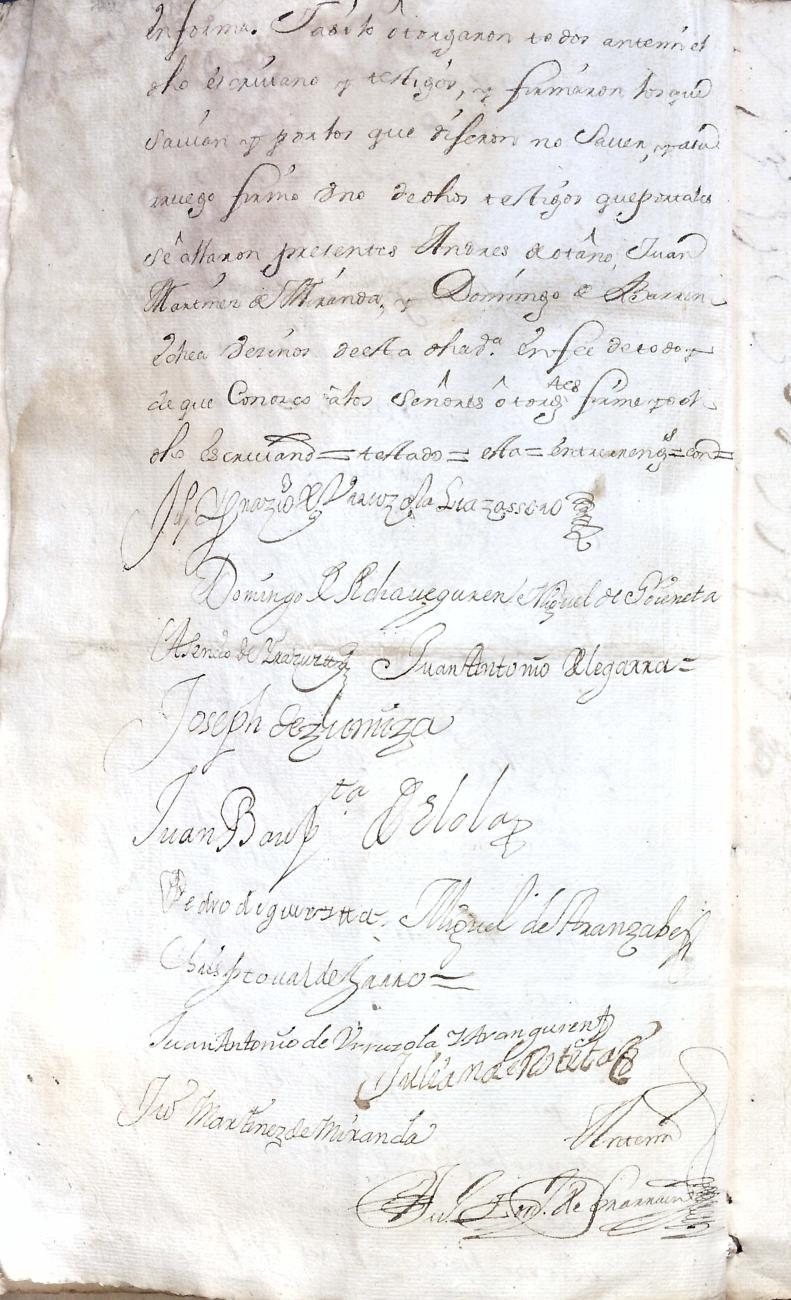 en forma. Y assi lo otorgaron todos antemi el
dho escriuano y testigos, y firmaron los que
sauian y por los que dixeron no sauer, y a su
ruego firmo vno de dhos testigos que por tales
se allaron presentes Andres de otaño, Juan
Martinez de Miranda, y Domingo de Barren
echea vezinos de esta dha vª. En fee de todo y
de que Conozco â los Señores ôtorgtes firme yo el
dho escriuano = testado = esta = entrerrengs = con =
de Vrruzola Lizazssoro
Domingo de Echaueguren Miguel de Goieneta
Asencio de Juan Antonio Olegarra =
Joseph de zumiza
Juan Baupta de Elola
Pedro de Miguel de Aranzabe
Chrisptoual de Yarro =
Juan Antonio de Vrruzola y Aranguren
Julian de Roteta
Juº Martinez de Miranda Antemi
de Larrain